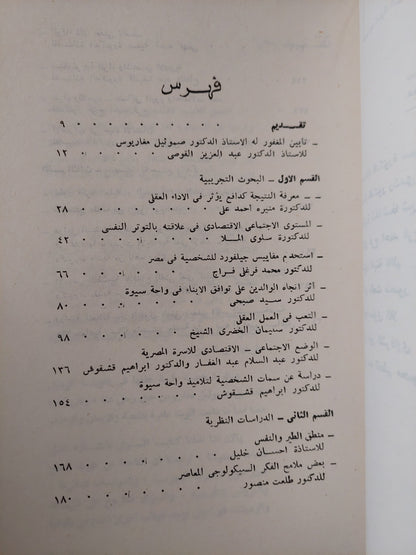 فهرس
تقديم ٩
ـ تأبين المغفور له الاستاذ الدكتور صموئيل مغاريوس
للاستاذ الدكتور عبد العزيز القوصى ١٢
القسم الاول ـ البحوث التجريبية
ـ معرفة النتيجة كدافع يؤثر فى الاداء العقلى
للدكتورة منيره احمد على ٢٨
ـ المستوى الاجتماعى الاقتصادى فى علاقته بالتوتر النفسى
للدكتورة سلوى الملا ٤٢
ـ استخدم مقاييس جيلفورد للشخصية في مصر
للدكتور محمد فرغلى فراج ٦٦
ـ أثر اتجاه الوالدين على توافق الابناء فى واحة سيوة
للدكتور سيد صبحى ٨٠
ـ التعب فى العمل العقلى
للدكتور سليمان الخضرى الشيخ ٩٨
ـ الوضع الاجتماعى ـ الاقتصادى للاسرة المصرية
للدكتور عبد السلام عبد الغفار والدكتور ابراهيم قشقوش ١٣٦
ـ دراسة عن سمات الشخصية لتلاميذ واحة سيوة
للدكتور ابراهيم قشقوش ١٥٤
القسم الثانى ـ الدراسات النظرية
ـ منطق الطير والنفس
للاستاذة احسان خليل ١٦٨
ـ بعض ملامح الفكر السيكولوجى المعاصر
للدكتور طلعت منصور ١٨٠